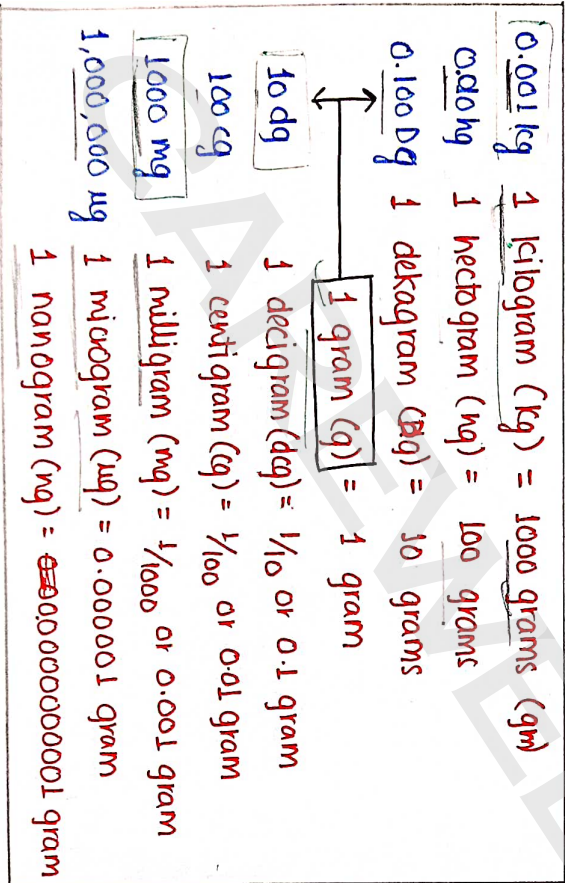 0.001 kg 1 kilogram (kg) = 1000 grams (gm)
0.010 hg 1 hectogram (hg) = 100 grams
0.100 Dg 1 dekagram (Dg) = 10 grams
1 gram (g) = 1 gram
10 dg 1 decigram (dg) = 1/10 or 0.1 gram
100 cg 1 centigram (cg) = 1/100 or 0.01 gram
1000 mg 1 milligram (mg) = 1/1000 or 0.001 gram
1,000,000 μg 1 microgram (μg) = 0.000001 gram
1 nanogram (ng) = 0.0000000001 gram